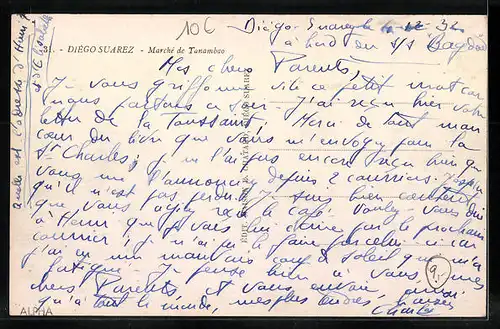 10 C
Diégo-Suarez le 32
à bord du s/s Bagdad
31. - DIÉGO SUAREZ - Marché de Tanambao
Mes chers Parents,
Je vous griffonne vite ce petit mot car
nous partons ce soir. J'ai reçu hier votre
lettre de la Toussaint. Merci de tout mon
cœur du lien que vous m'envoyez pour la
St Charles; je ne l'ai pas encore reçu bien que
vous me l'annonciez depuis 2 courriers. J'espère
qu'il n'est pas perdu. Je suis bien content
que vous ayiez reçu le café. Voulez-vous dire
à Henri que je vais lui écrire par le prochain
courrier; je n'ai pu le faire par celui-ci car
j'ai eu un mauvais coup de soleil qui m'a
fatigué. Je pense bien à vous mes
chers Parents et vous envoie, ainsi
qu'à tout le monde, mes plus tendres baisers
Charles
Quelle est l'adresse d'Henri
et d'Elisabeth
9,-
ALPHA